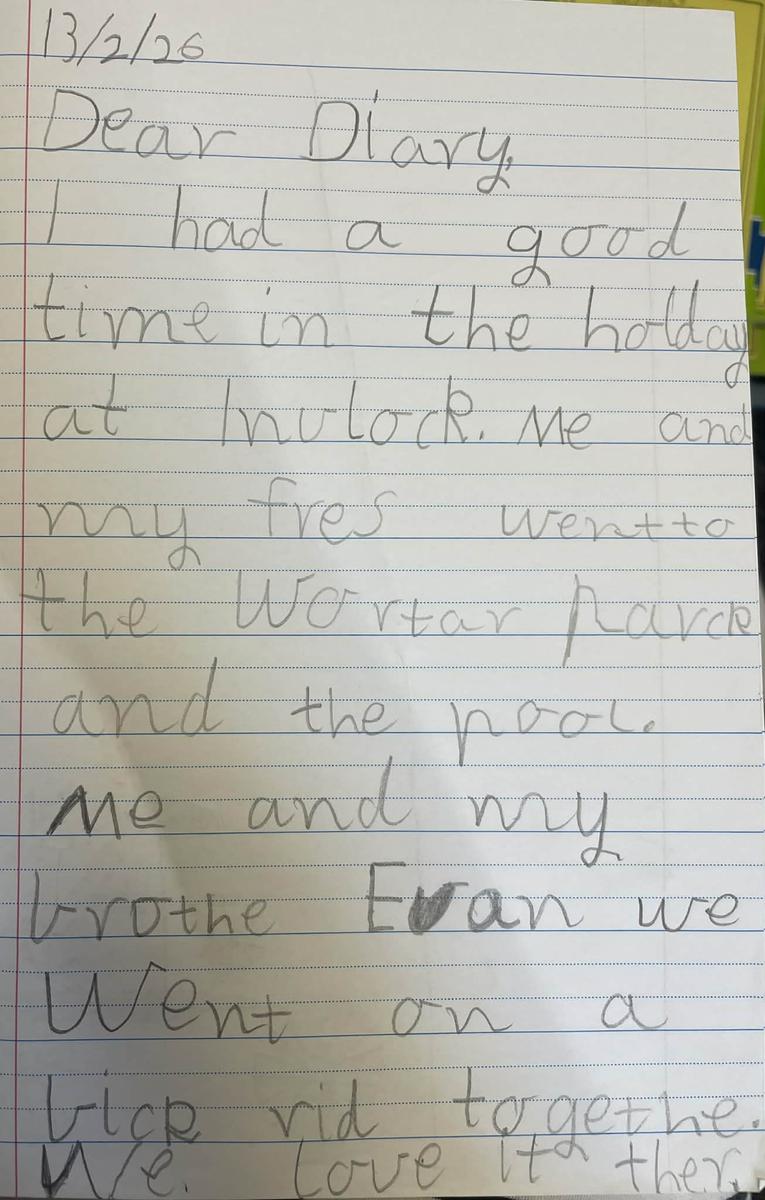 13/2/26
Dear Diary,
I had a good
time in the holday
at Invlock. Me and
my fres went to
the Wortar parck
and the pool.
Me and my
brothe Evan we
Went on a
bick rid togethe.
We. love it ther.